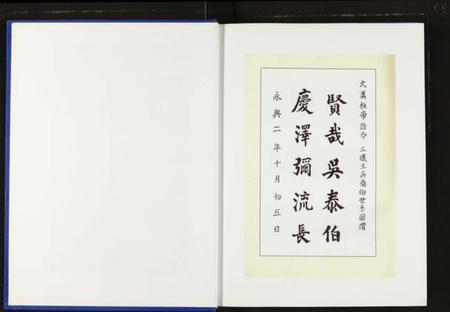 大漢桓帝誥命 三讓王吳泰伯世系圖讚
賢哉吳泰伯
慶澤彌流長
永興二年十月初五日